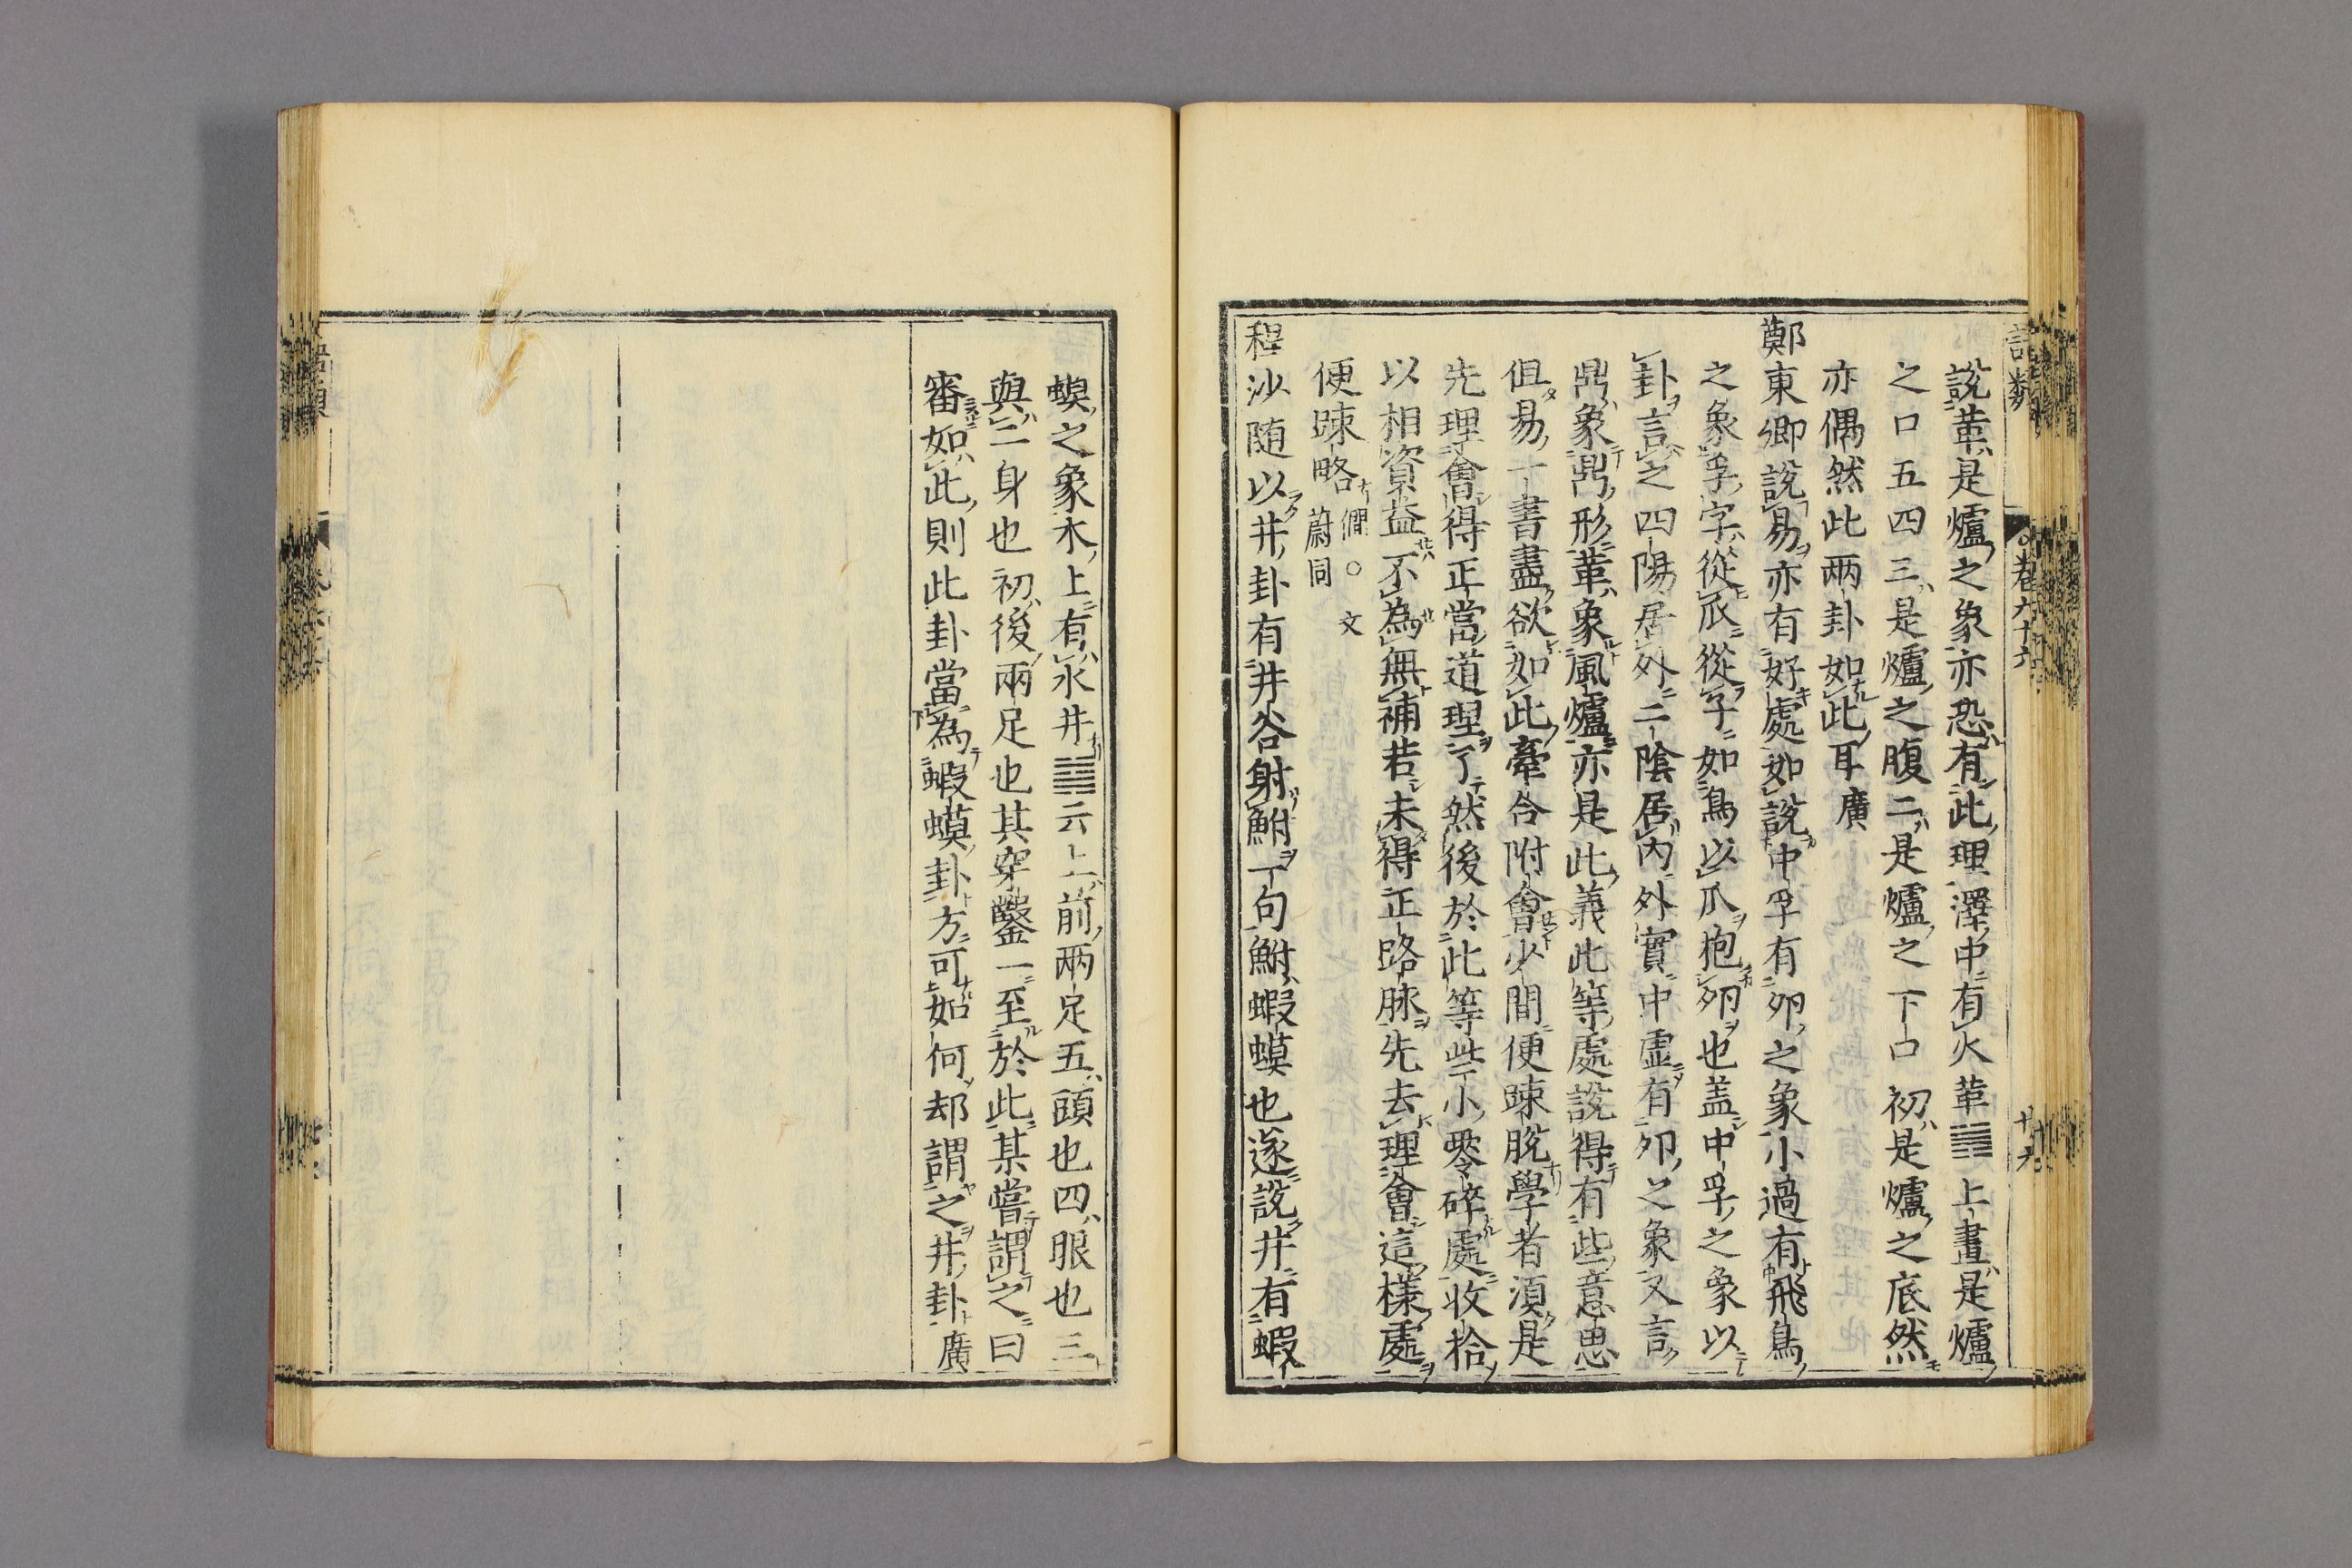 說革是爐之象亦恐有此理澤中有火革䷰上畫是爐
之口五四三是爐之腹二是爐之下口初是爐之底然
亦偶然此兩卦如此耳廣
鄭東卿說易亦有好處如說中孚有夘之象小過有飛鳥
之象孚字從爪從子如鳥以爪抱夘也盖中孚之象以
卦言之四陽居外二陰居內外實中虚有夘之象又言
鼎象鼎形革象風爐亦是此義此等處說得有些意思
但易一書盡欲如此牽合附會少間便踈脫學者湏是
先理會得正當道理了然後於此等些小零碎處收拾
以相資益不為無補若未得正路脉先去理會這樣處
便踈略僩○文
蔚同
程沙随以井卦有井谷射鮒一句鮒蝦蟆也遂說井有蝦
蟆之象木上有水井䷯云上前兩足五頭也四眼也三
與二身也初後兩足也其穿鑿一至於此某嘗謂之曰
審如此則此卦當為蝦蟆卦方可如何却謂之井卦廣
語類
卷六十六
十九